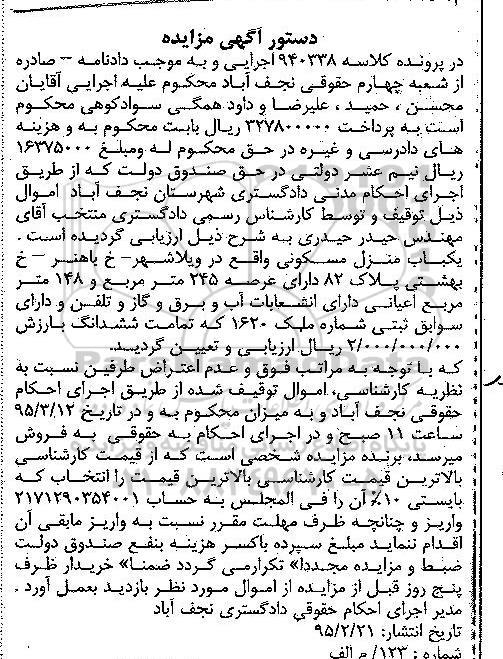 دستور آگهی مزایده
در پرونده کلاسه ۹۴۰۳۳۸ اجرایی و به موجب دادنامه – صادره
از شعبه چهارم حقوقی نجف آباد محکوم علیه اجرایی آقایان
محسن ، حمید ، علیرضا و داود همگی سوادکوهی محکوم
است به پرداخت ۳۲۷۸۰۰۰۰۰ ریال بابت محکوم به و هزینه
های دادرسی و غیره در حق محکوم له ومبلغ ۱۶۳۷۵۰۰۰
ریال نیم عشر دولتی در حق صندوق دولت که از طریق
اجرای احکام مدنی دادگستری شهرستان نجف آباد اموال
ذیل توقیف و توسط کارشناس رسمی دادگستری منتخب آقای
مهندس حیدر حیدری به شرح ذیل ارزیابی گردیده است .
یکباب منزل مسکونی واقع در ویلاشهر– خ باهنر – خ
بهشتی پلاک ۸۲ دارای عرصه ۲۴۵ متر مربع و ۱۴۸ متر
مربع اعیانی دارای انشعابات آب و برق و گاز و تلفن و دارای
سوابق ثبتی شماره ملک ۱۶۲۰ که تمامت ششدانگ بارزش
۲/۰۰۰/۰۰۰/۰۰۰ ریال ارزیابی و تعیین گردید.
که با توجه به مراتب فوق و عدم اعتراض طرفین نسبت به
نظریه کارشناسی، اموال توقیف شده از طریق اجرای احکام
حقوقی نجف آباد و به میزان محکوم به و در تاریخ ۹۵/۳/۱۲
ساعت ۱۱ صبح و در اجرای احکام به حقوقی به فروش
میرسد، برنده مزایده شخصی است که از قیمت کارشناسی
بالاترین قیمت کارشناسی بالاترین قیمت را انتخاب که
بایستی ۱۰٪ آن را فی المجلس به حساب ۲۱۷۱۲۹۰۳۵۴۰۰۱
واریز و چنانچه ظرف مهلت مقرر نسبت به واریز مابقی آن
اقدام ننماید مبلغ سپرده باکسر هزینه بنفع صندوق دولت
ضبط و مزایده مجددا» تکرارمی گردد ضمنا» خریدار ظرف
پنج روز قبل از مزایده از اموال مورد نظر بازدید بعمل آورد .
مدیر اجرای احکام حقوقی دادگستری نجف آباد
تاریخ انتشار: ۹۵/۲/۲۱
شماره : ۱۲۳/ م الف